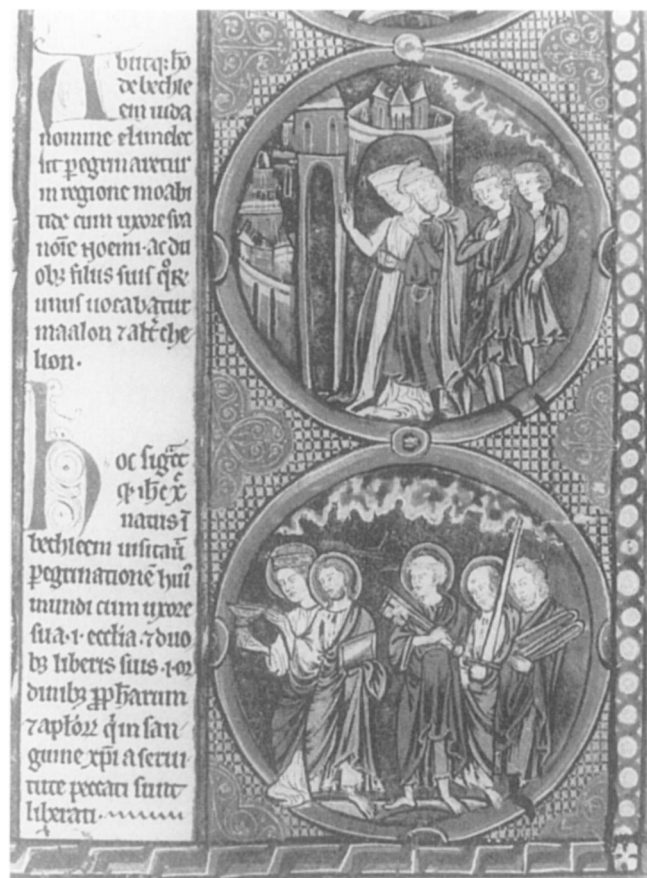 Abiitq; hō
de bethle
em iuda
nomine elimelec
ut pegrinaretur
in regione moabi
tide cum uxore sua
noīe noemi. ac du
ob; filiis suis qꝝ
unus uocabatur
maalon ⁊ alt̄ che
lion.
hoc siḡt
q̄ ih̄c x̄c
natus ī
bethleem uisitau̅
pegrinationē hui⁹
mundi cum uxore
sua .i. ecclīa. ⁊ duo
b; liberis suis .i. or
dinib; ꝓph̄arum
⁊ apl̄oꝝ q̄ in san
guine xp̄i a serui
tute peccati sunt
liberati.